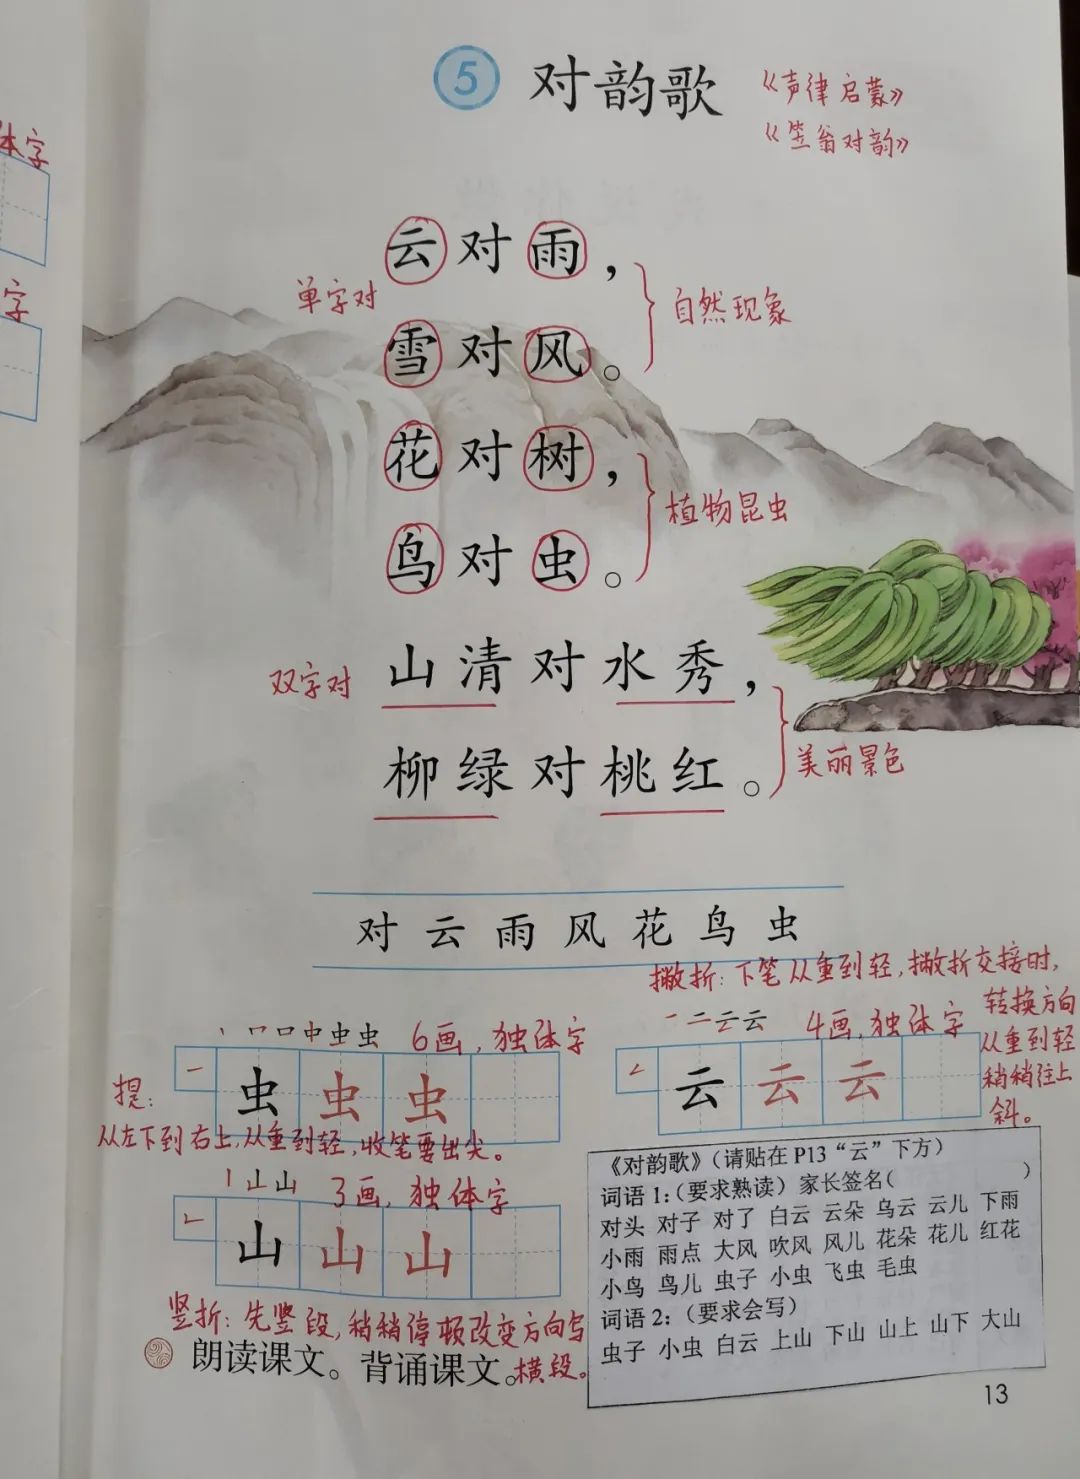 体字
字
5 对韵歌
《声律启蒙》
《笠翁对韵》
云对雨，
单字对
自然现象
雪对风。
花对树，
植物昆虫
鸟对虫。
双字对
山清对水秀，
美丽景色
柳绿对桃红。
对 云 雨 风 花 鸟 虫
撇折：下笔从重到轻，撇折交接时，
转换方向
从重到轻
稍稍往上
斜。
6画，独体字
提：
虫 虫 虫
从左下到右上，从重到轻，收笔要出尖。
4画，独体字
云 云 云
3画，独体字
山 山 山
竖折：先竖段，稍稍停顿改变方向写
横段。
朗读课文。背诵课文。
《对韵歌》（请贴在 P13“云”下方）
词语 1：（要求熟读）家长签名（ ）
对头 对子 对了 白云 云朵 乌云 云儿 下雨
小雨 雨点 大风 吹风 风儿 花朵 花儿 红花
小鸟 鸟儿 虫子 小虫 飞虫 毛虫
词语 2：（要求会写）
虫子 小虫 白云 上山 下山 山上 山下 大山
13